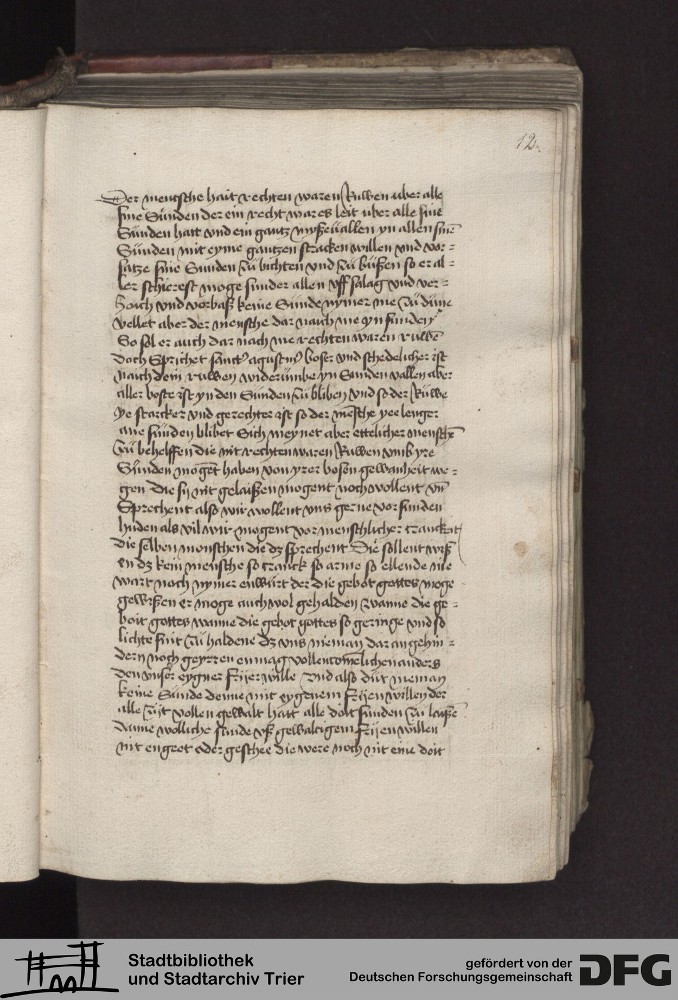 12
Der mensche hait rechten waren Ruwen uber alle
sine Sunden der ein recht war es leit uber alle sine
Sunden hatt vnd ein gantz myßeuallen yn allen sinē
Sunden mit eyme gantzen stracken willen vnd vor=
satze sine Sunden zu bichten vnd zu bußen so er al=
ler schierest moge sunder allen vff salag vnd ver=
hoich vnd vorbaß keine Sunde nymer me zu dune
vellet aber der mensche dar naich me yn sunden
So sol er auch dar nach me rechten waren ruwē
doch Sprichet sanctꝰ agustinꝰ boser vnd schedelicher ist
naich dem ruwen widerumbe yn Sunden vallen aber
aller boste ist yn den Sunden zu bliben vnd so der Ruwe
ye starcker vnd gerechter ist so der mēsche yee lenger
ane sunden blibet Sich meynet aber ettelicher menschē
zu behelffen die nit rechten waren Ruwen vmb yre
Sunden mogēt haben von yrer bosen gewanheit we=
gen die sij nit gelaißen mogent noch wollent vn̄
Sprechent also wir wollent vns gerne vor sunden
huden als vil wir mogent vor menschlicher cranckeit
die selben menschen die dz sprechent Die sollent wiß
en dz kein mensche so cranck so arme so ellende nie
wart noch nymer enwurt der die gebot gottes moge
gewißen er moge auch wol gehalden wanne die ge=
boit gottes wanne die gebot gottes so geringe vnd so
lichte sint zu haldene dz vns nieman dar an gehin=
dern noch geyrren en mag vollencomelichen anders
den vnser eygner frijer wille Vnd also dut nieman
keine Sunde denne mit eygenem frijen willen der
alle zijt vollen gewalt hatt alle dott sunden zu laißē
danne wolliche sunde vß gewaltigem frijen willen
nit engeet oder geschee die were noch nit eine doit
Stadtbibliothek
und Stadtarchiv Trier
gefördert von der
Deutschen Forschungsgemeinschaft
DFG